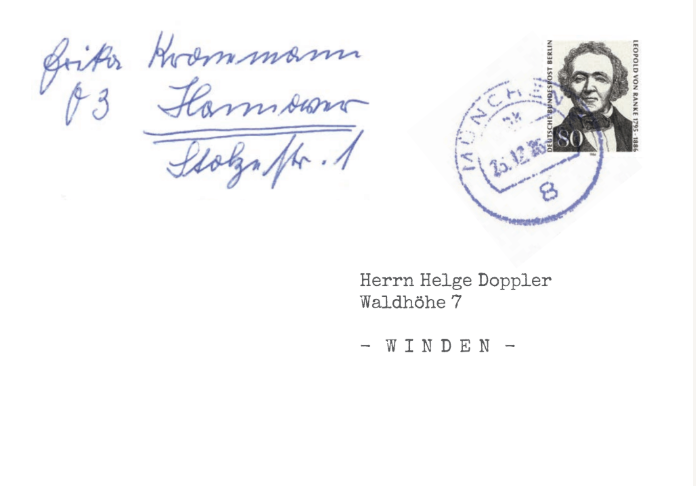 Erika Kranemann
03 Hannover
Stolzestr. 1
DEUTSCHE BUNDESPOST BERLIN
LEOPOLD VON RANKE 1795-1886
80
MÜNCHEN
8
Herrn Helge Doppler
Waldhöhe 7
- WINDEN -